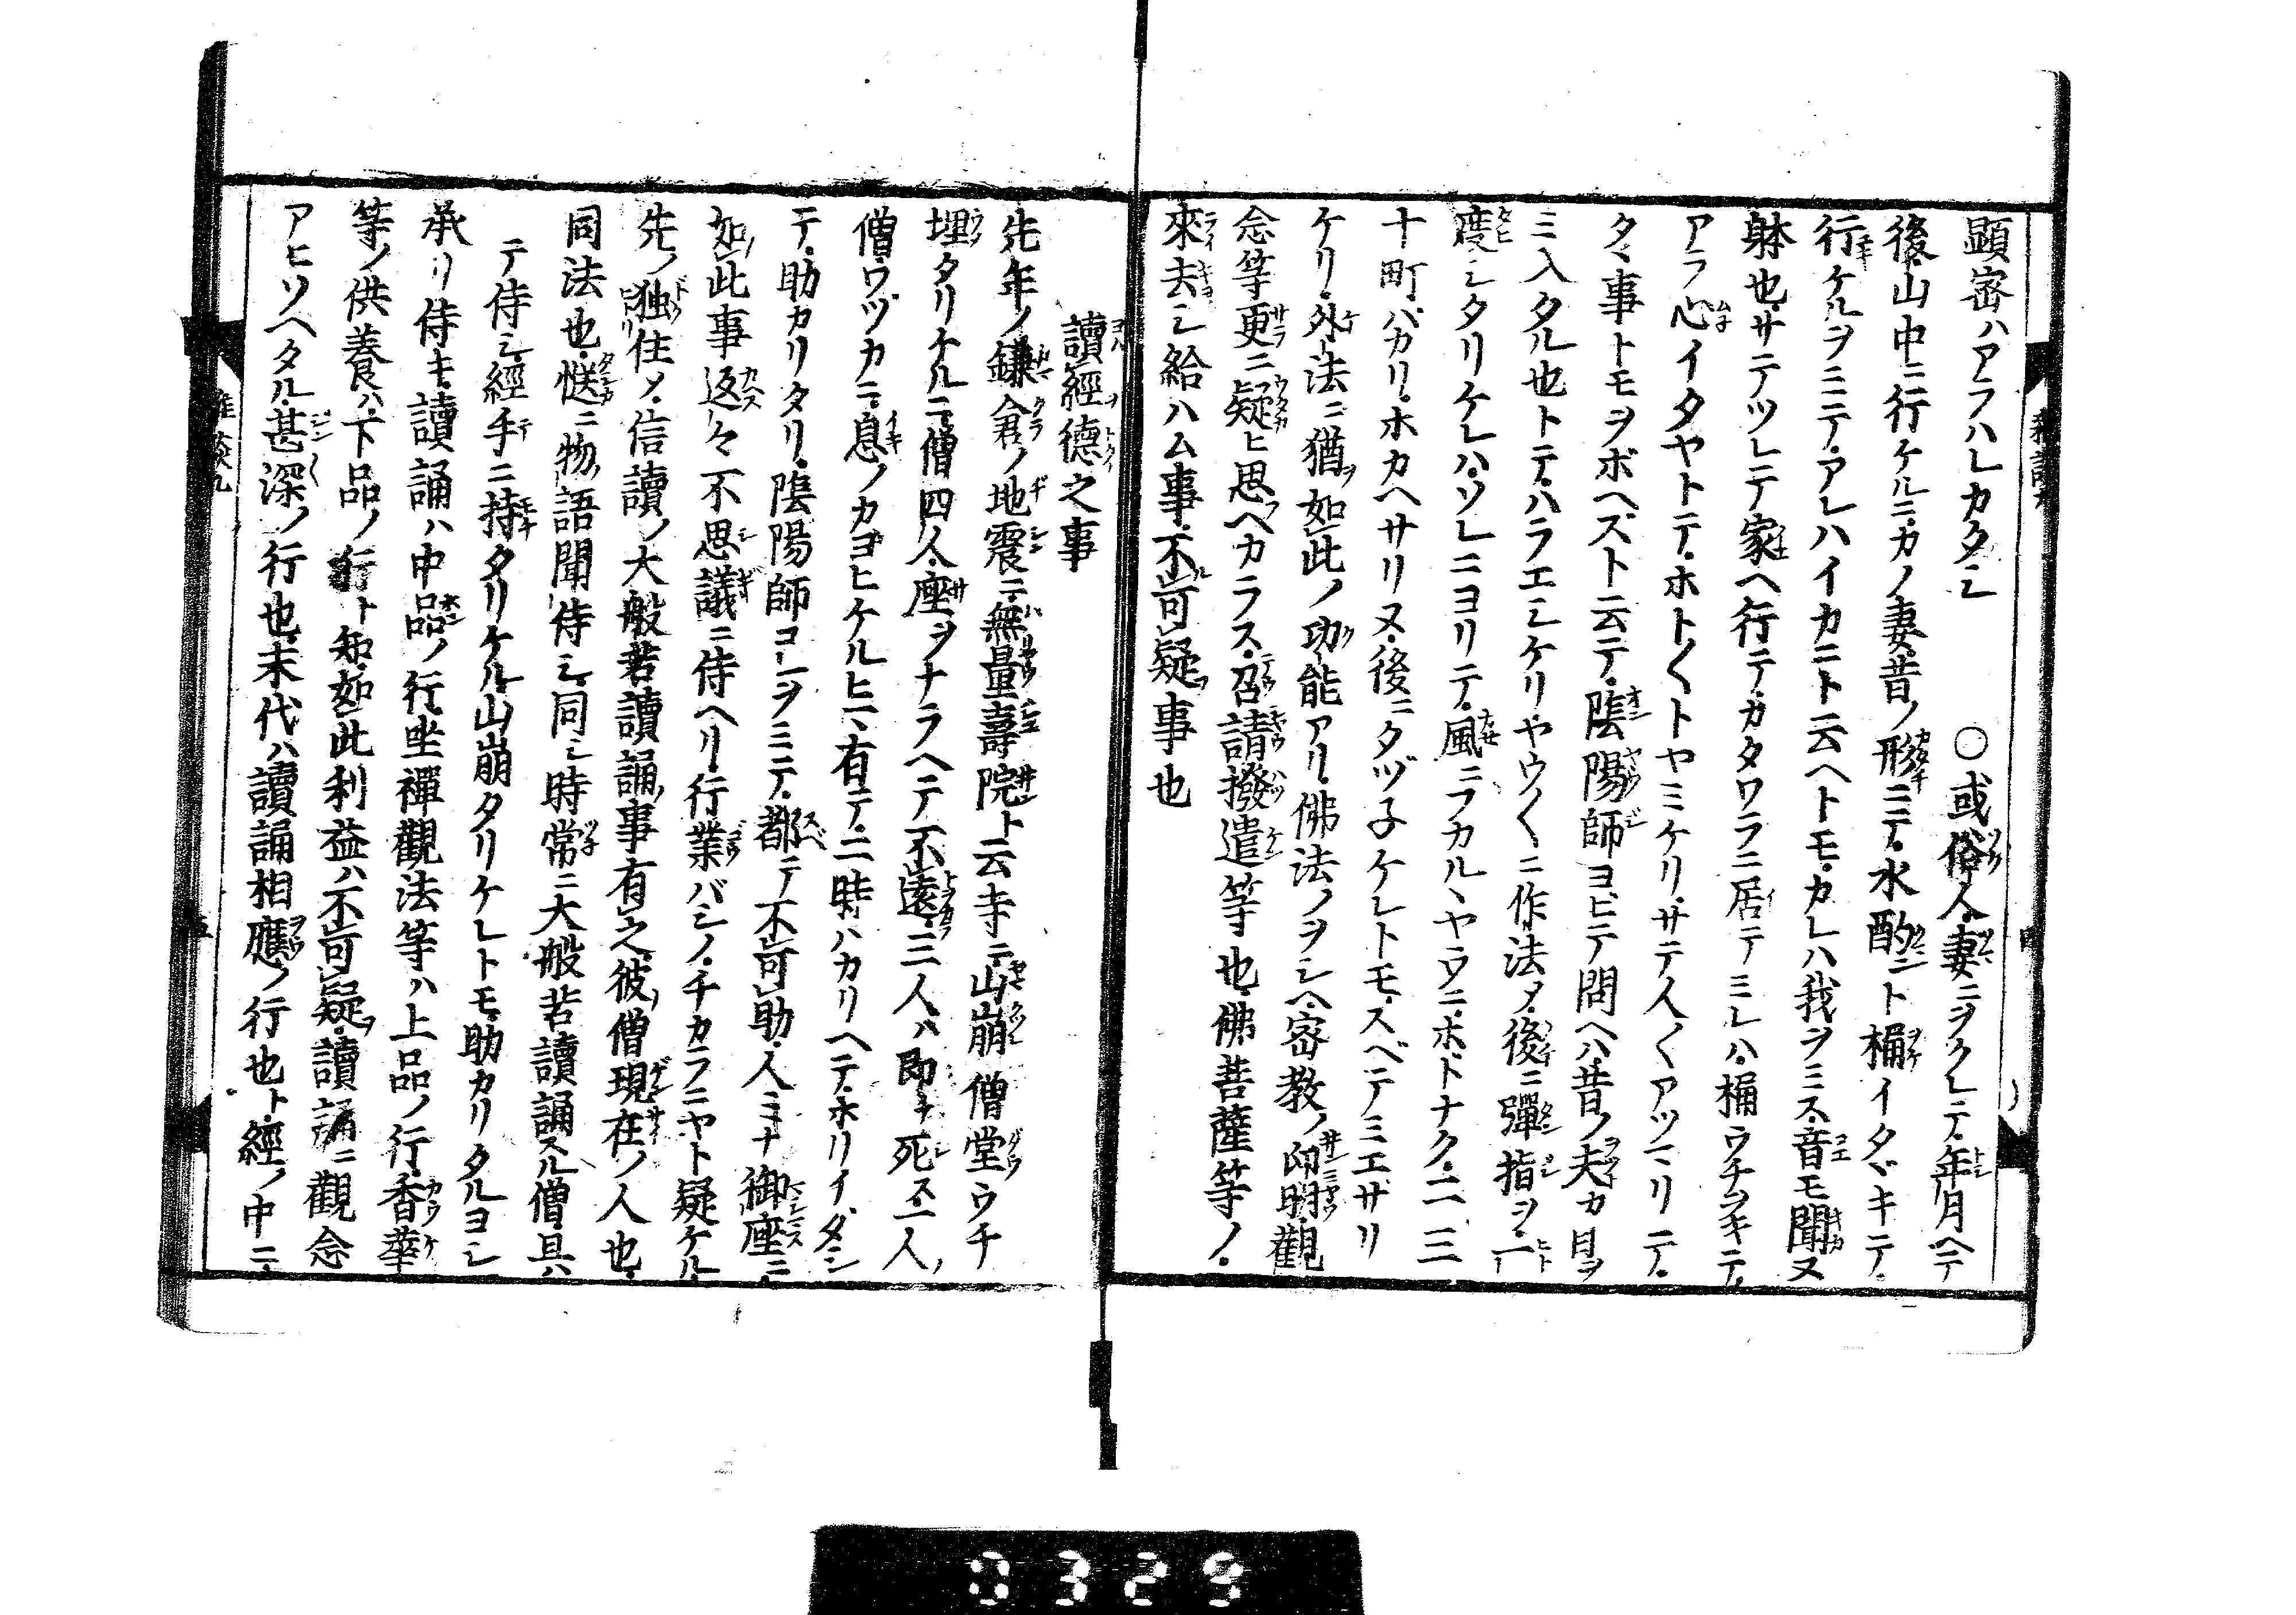 顕密ハアラハレカタシ　〇或俗人妻ニヲクレテ年月ヘテ
後山中ニ行ケルニカノ妻昔ノ形ニテ水酌ニト桶イタヾキテ
行ケルヲミテアレハイカニト云ヘトモカレハ我ヲミス音モ聞ヌ
躰也サテツレテ家ヘ行テカタワラニ居テミレハ桶ウチヲキテ
アラ心イタヤトテホト〱トヤミケリサテ人〱アツマリテ
タヽ事トモヲボヘズト云テ陰陽師ヨビテ問ヘハ昔ノ夫カ目ヲ
ミ入タル也トテハラエシケリヤウ〱ニ作法メ後ニ彈指ヲ一
度シタリケレハソレニヨリテ風ニフカルヽヤウニホドナク二三
十町バカリホカヘサリヌ後ニタヅ子ケレトモスベテミエザリ
ケリ外法ニ猶如此ノ功能アリ佛法ノヲシヘ密教ノ印明觀
念等更ニ疑ヒ思ヘカラス召請撥遣等也佛菩薩等ノ
來去シ給ハム事不可疑事也
讀經德之事
先年ノ鎌倉ノ地震ニ無量壽院ト云寺ニ山崩僧堂ウチ
埋タリケルニ僧四人座ヲナラヘテ不遠三人ハ即チ死ス一人ノ
僧ウツカニ息ノカヨヒケルヒマ有テ二時ハカリヘテホリイダシ
テ助カリタリ陰陽師コレヲミテ都テ不可助人ミナ御座ニ
如此事返々不思議ニ侍ヘリ行業バシノチカラニヤト疑ケル
先ノ独住メ信讀ノ大般若讀誦事有之彼ノ僧現在ノ人也
同法也慥ニ物語聞侍シ同シ時常ニ大般若讀誦スル僧具ハ
テ侍シ經手ニ持タリケル山崩タリケレトモ助カリタルヨシ
承リ侍キ讀誦ハ中品ノ行坐禪觀法等ハ上品ノ行香華
等ノ供養ハ下品ノ行ト知如此利益ハ不可疑讀誦ニ觀念
アヒソヘタル甚深ノ行也末代ハ讀誦相應ノ行也ト經ノ中ニ
雜談九
四
五
0329